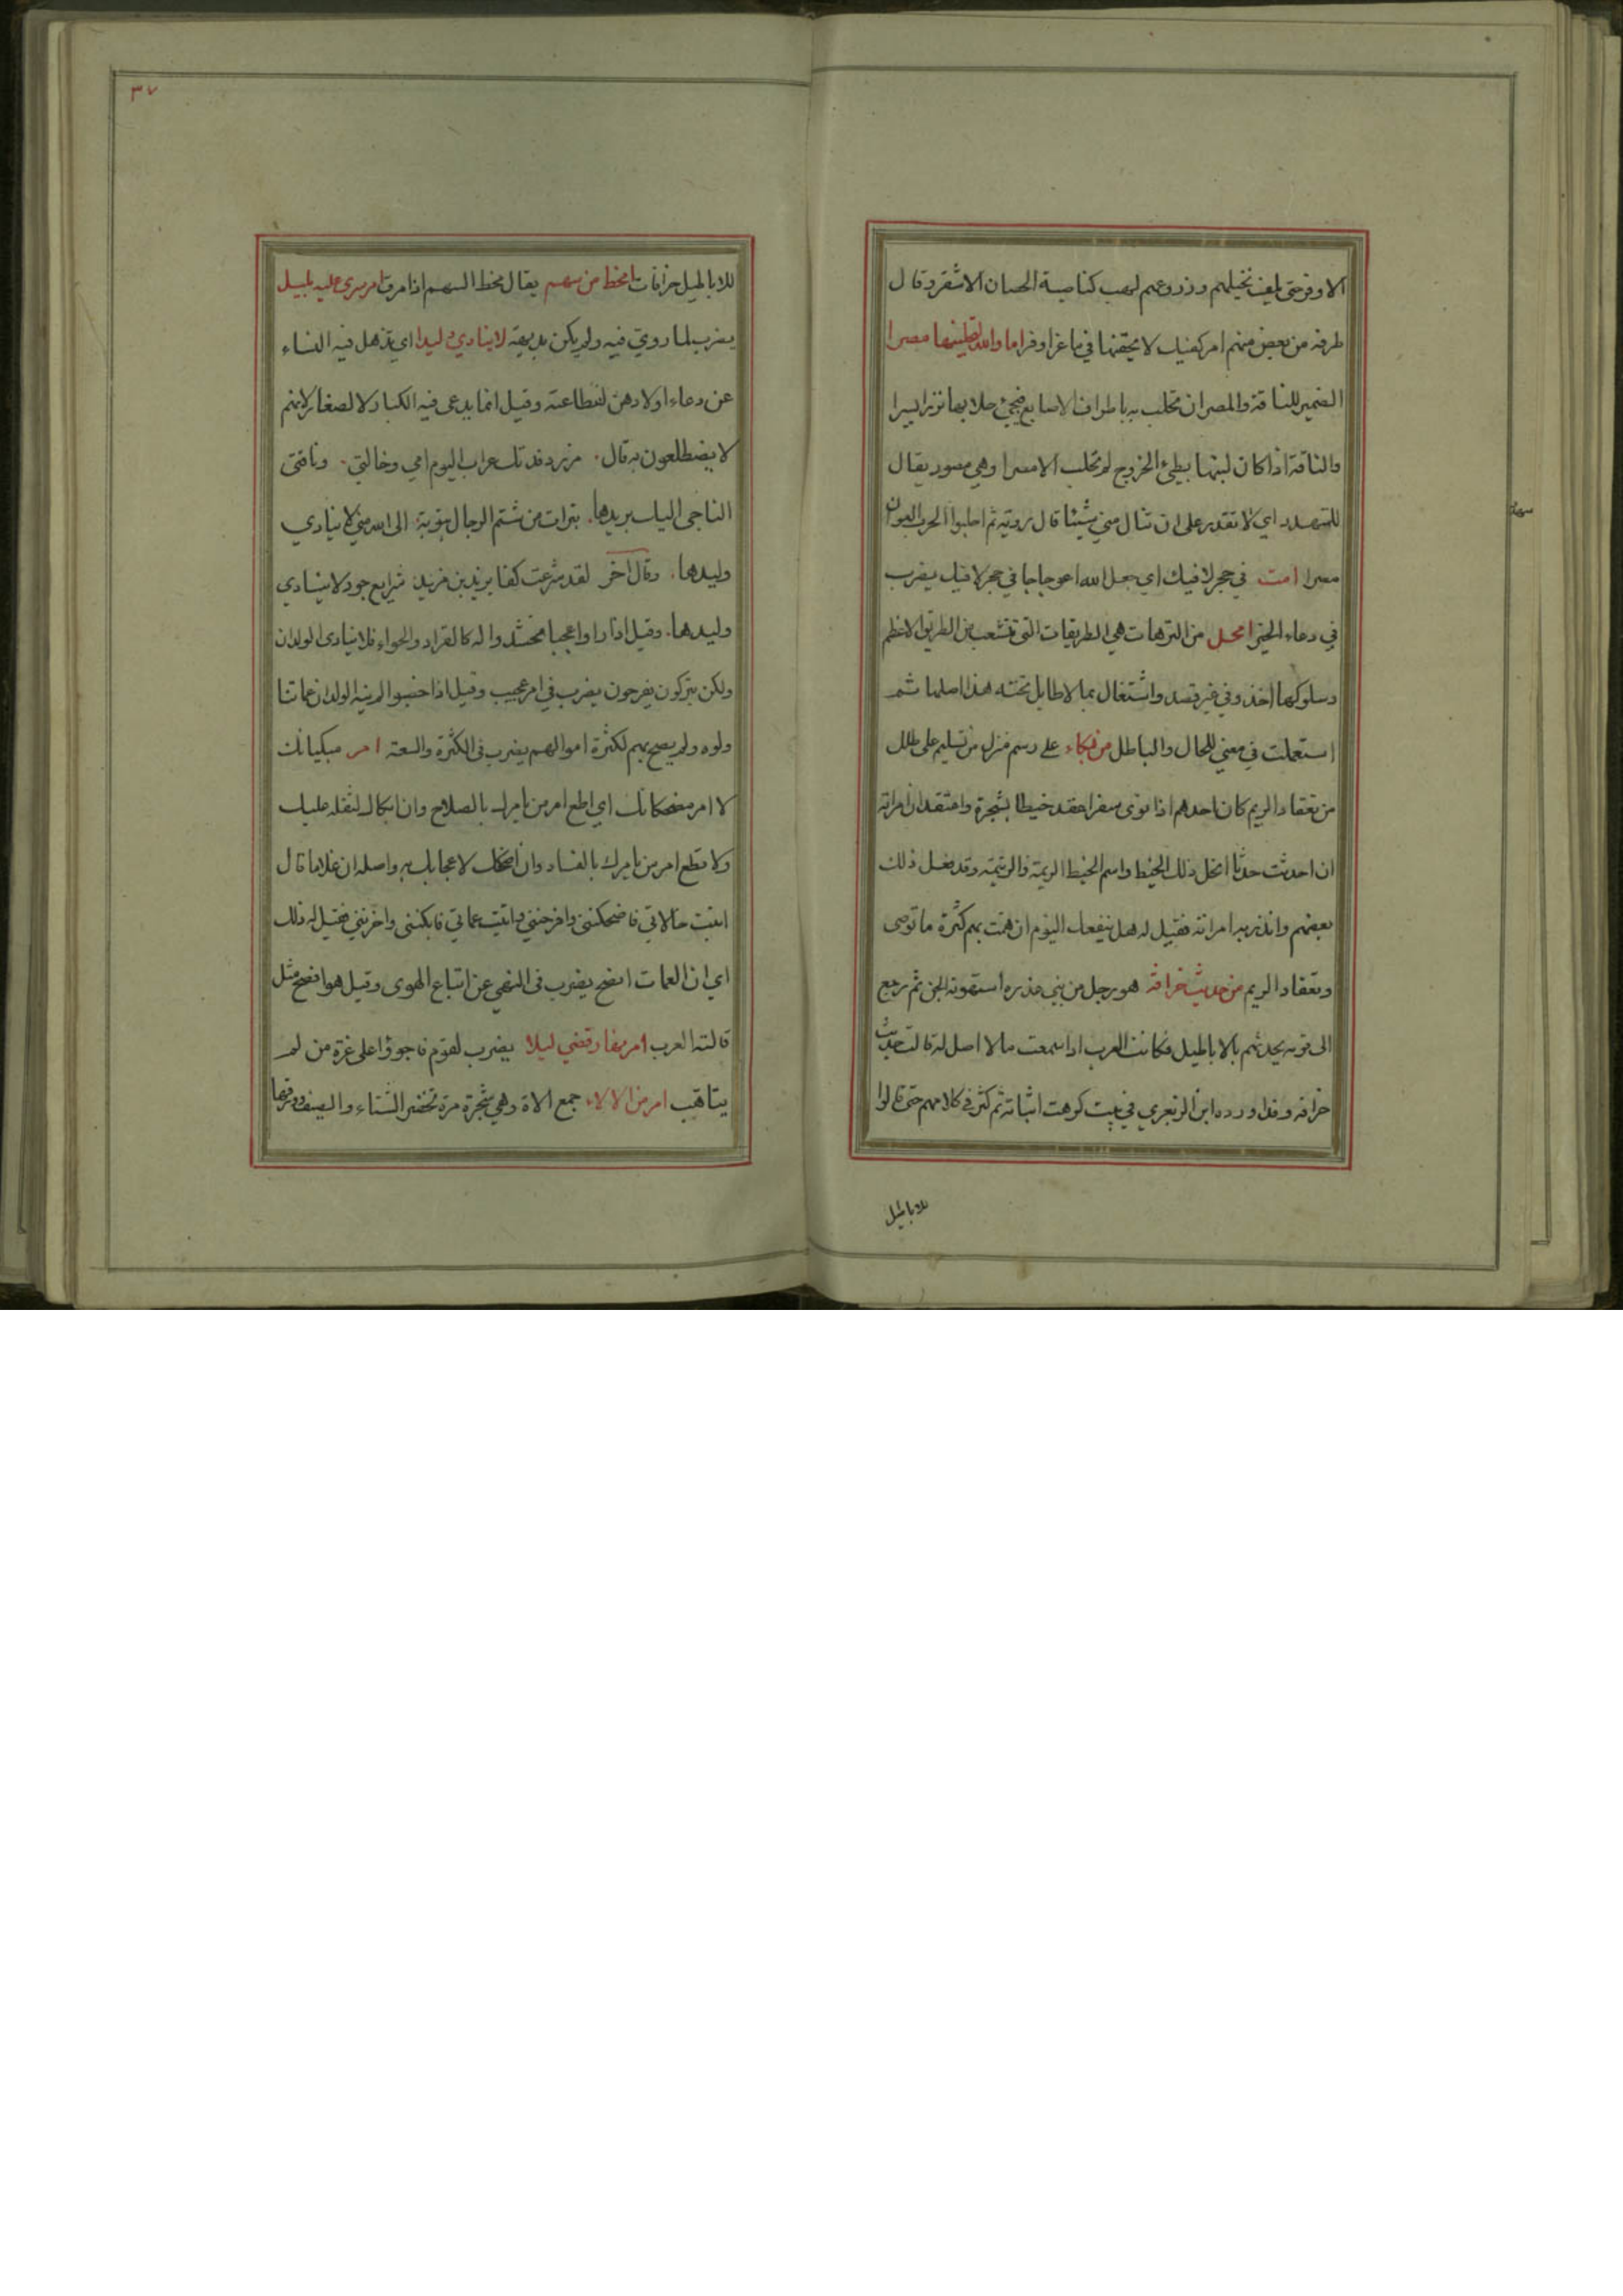 الا وفرحتى يلف نخيلهم وزروعهم لهب كناصية الحصان الاشقر وقال
طرفه من بعض منهم امر كفيك لا يحقنها في ما غزا وفرا اما والله لتحلبنها مصرا
الضمير للناقة والمصر ان تحلب به باطراف الاصابع فيجئ حلابها نزرا يسيرا
والناقة اذا كان لبنها بطئ الخروج لم تحلب الا مصرا وهي مصور يقال
للتهدد اي لا تقدر على ان تنال مني شيئا قال رويته ثم احلبوا الحرب العوان
مصرا امت في حجر لا فيك اي جعل الله اعوجاجا في حجر لا فيك يضرب
في دعاء الخير امحل من الترهات هي الطريقات التي تتشعب من الطريق الاعظم
وسلوكها اخذ وفي غير قصد واشتغال بما لا طايل تحته هذا اصلها ثم
استعملت في معني المحال والباطل من بكاء على رسم منزل من تسليم على طلل
من تعقاد الريم كان احدهم اذا نوى سفرا عقد خيطا بشجرة واعتقد ان امراته
ان احدثت حدثا انحل ذلك الخيط واسم الخيط الريمة والرتيمة وقد فعل ذلك
بعضهم وانذر به امراته فقيل له هل ينفعك اليوم ان همت بهم كثرة ما توصى
وتعقاد الريم من حديث خرافة هو رجل من بني عذره استهوته الجن ثم رجع
الى قومه يحدثهم بالاباطيل فكانت العرب اذا سمعت ما لا اصل له قالت حديث
خرافه وقد اورده ابن الزبعري في بيت كرهت اثباته ثم كثر في كلامهم حتى قالوا
للاباطيل
٣٧
للاباطيل خرافات امخط من سهم يقال مخط السهم اذا مرق امر سرى عليه بليل
يضرب لما روي فيه ولم يكن بديهة لا ينادي وليدا اي تذهل فيه النساء
عن دعاء اولادهن لفظاعته وقيل انما يدعى فيه الكبار لا لصغار لانهم
لا يضطلعون به قال مزرد فدتك عراب اليوم امي وخالتي وناقتى
الناجى اليك بريدها تبرات من شتم الرجال بتوبة الى الله مني لا ينادي
وليدها وقال آخر لقد شرعت كفا يزيد بن مزيد شرايع جود لا ينادي
وليدها وقيل اذا راوا عجبا تحشدوا له كالقراد والحواء فلا ينادى الولدان
ولكن يتركون يفرحون يضرب في امر عجيب وقيل اذا خصبوا لم ينه الولدان عما تنا
ولوه ولم يصح بهم لكثرة اموالهم يضرب في الكثرة والسعة امر مبكياتك
لا امر مضحكاتك اي اطع امر من يامرك بالصلاح وان ابكاك لثقله عليك
ولا تطع امر من يامرك بالفساد وان اضحكك لاعجابك به واصله ان غلاما قال
اتيت خالاتي فاضحكننى وافرحننى واتيت عماتي فابكننى واحزننى فقيل له ذلك
اي ان العمات انصح يضرب فى النهى عن اتباع الهوى وقيل هو افصح مثل
قالته العرب امر بفارقضي ليلا يضرب لقوم فاجوؤا على غرة من لم
يتاهب امر من الالاء جمع الاة وهي شجرة مرة تخضر الشتاء والصيف وورقها